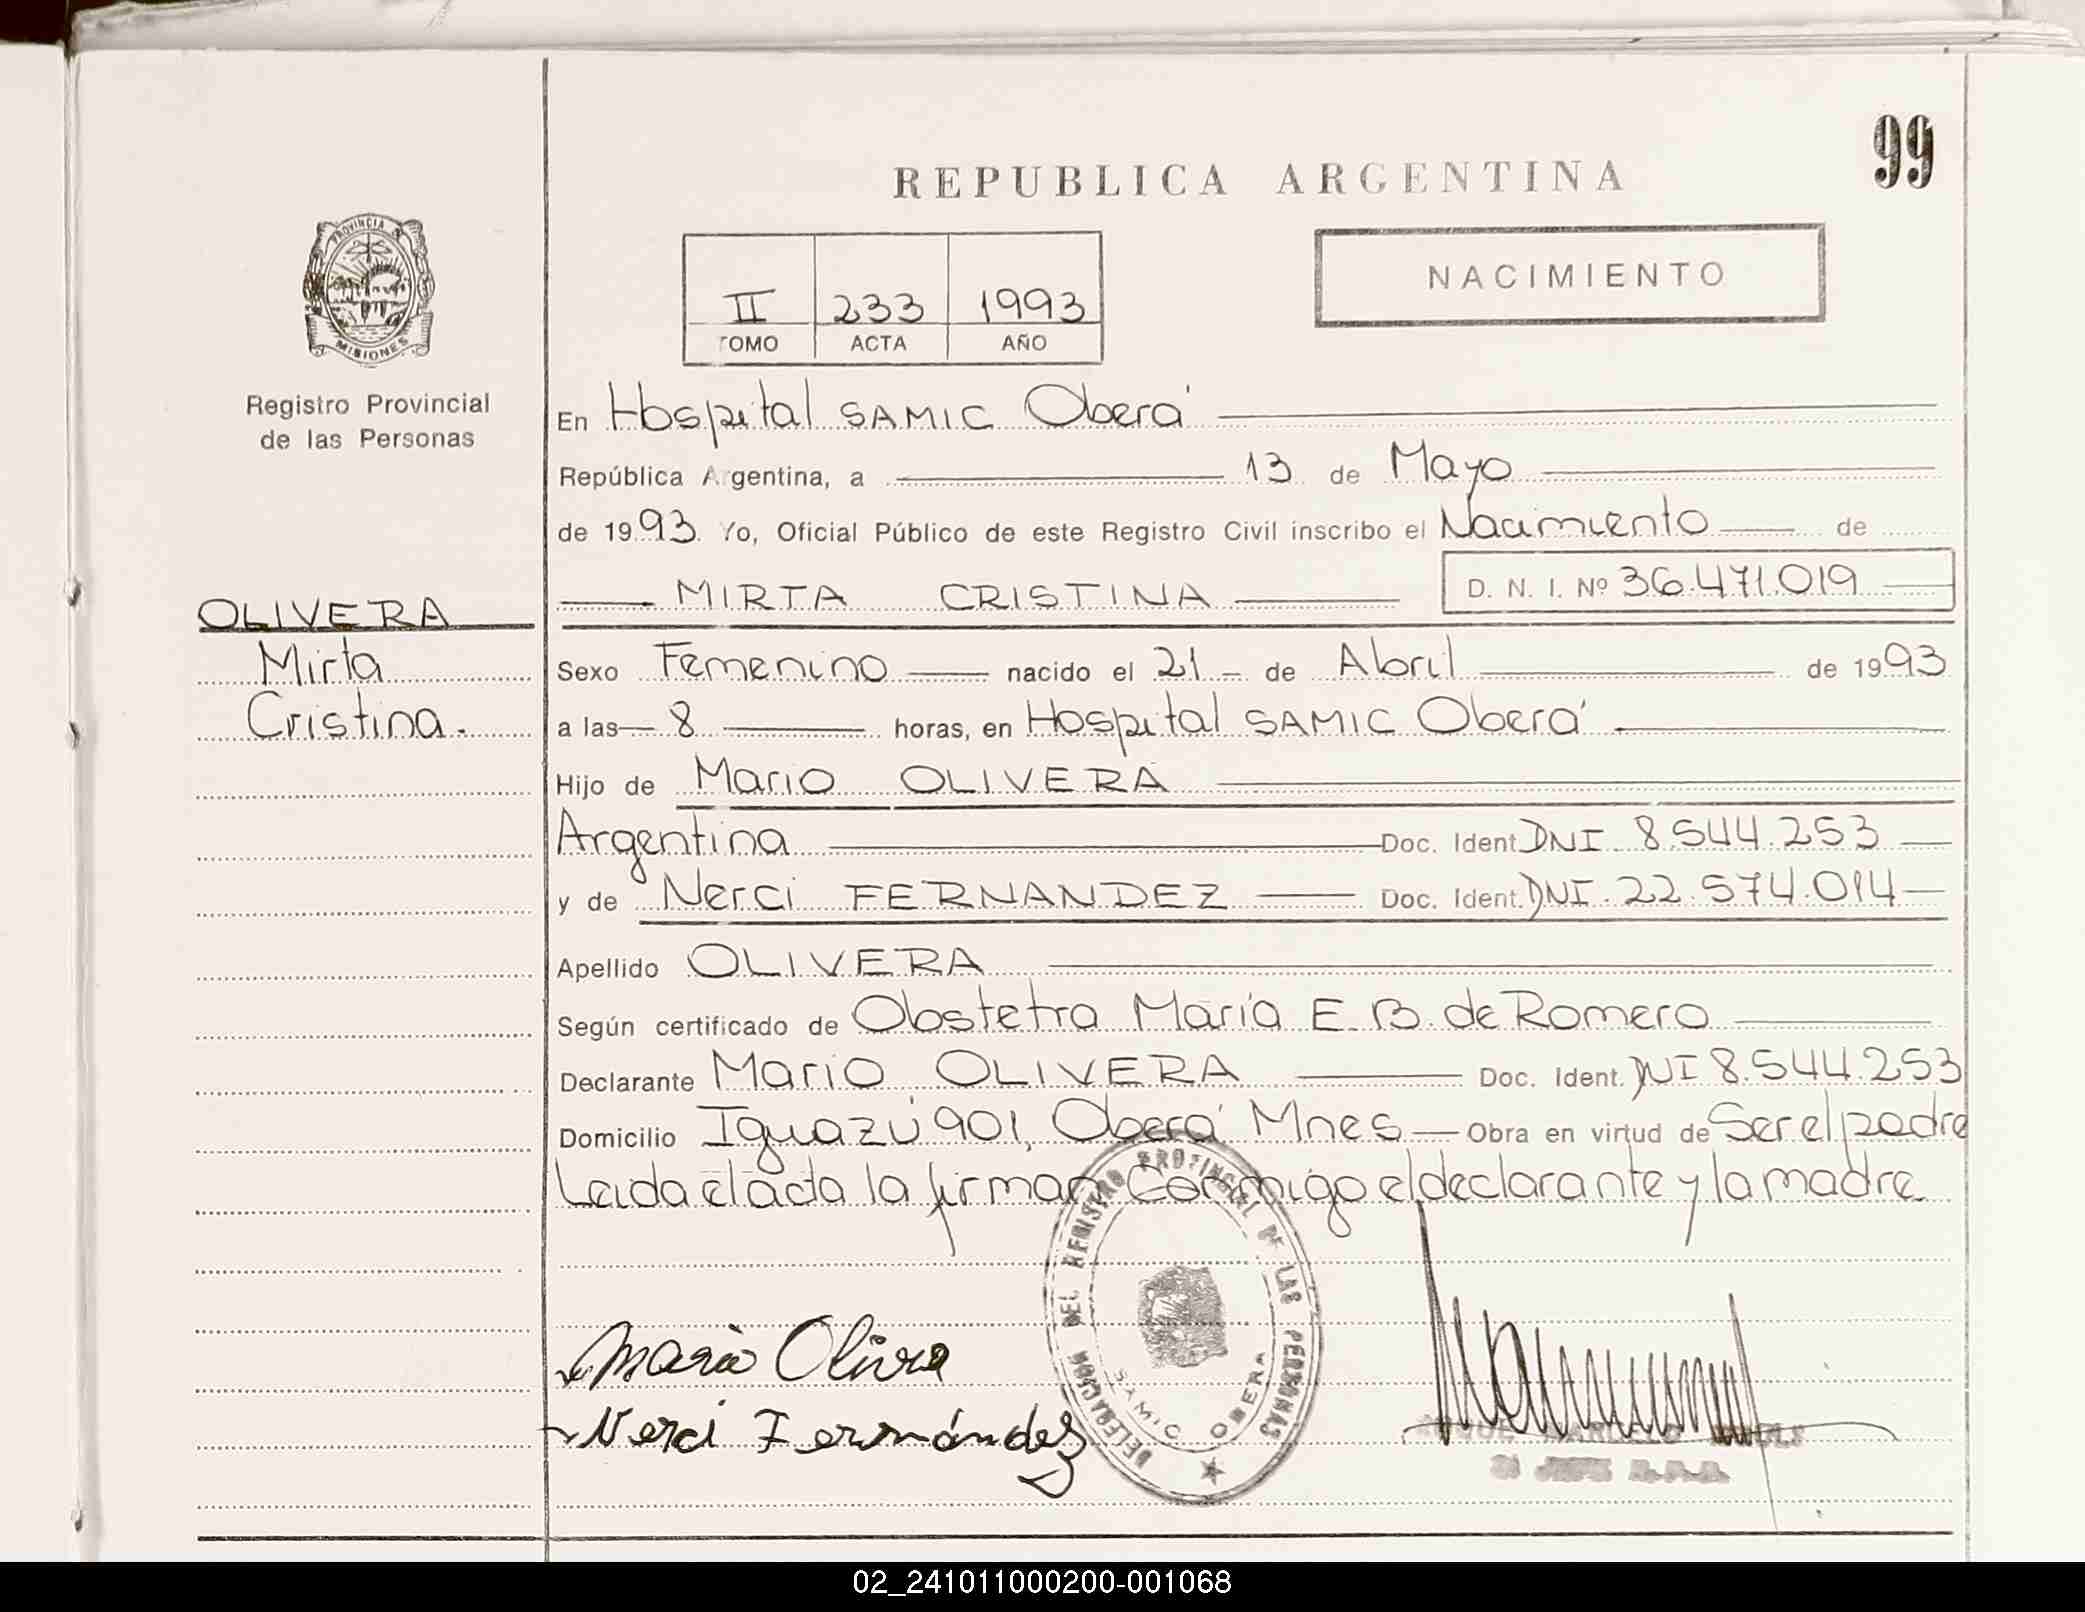 99
REPUBLICA ARGENTINA
NACIMIENTO
PROVINCIA DE
MISIONES
II 233 1993
TOMO ACTA AÑO
Registro Provincial
de las Personas
En Hospital SAMIC Oberá
República Argentina, a 13 de Mayo
de 1993 Yo, Oficial Público de este Registro Civil inscribo el Nacimiento de
MIRTA CRISTINA D. N. I. Nº 36.471.019
OLIVERA
Mirta
Cristina.
Sexo Femenino nacido el 21 de Abril de 1993
a las 8 horas, en Hospital SAMIC Oberá
Hijo de Mario OLIVERA
Argentina Doc. Ident. DNI 8.544.253
y de Nerci FERNANDEZ Doc. Ident. DNI. 22.574.014
Apellido OLIVERA
Según certificado de Obstetra María E. B. de Romero
Declarante Mario OLIVERA Doc. Ident. DNI 8.544.253
Domicilio Iguazú 901, Oberá Mnes Obra en virtud de Ser el padre
Leida el acta la firman conmigo el declarante y la madre
DELEGACION DEL REGISTRO PROVINCIAL DE LAS PERSONAS
SAMIC OBERA
Mario Olivera
Nerci Fernández
02_241011000200-001068